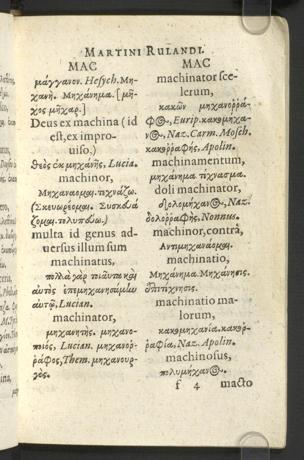 MARTINI RULANDI.
MAC
μάγγανον. Hesych. Μη-
χανή. Μηχάνημα. [μῆ-
χος μῆχαρ.]
Deus ex machina (id
est, ex impro-
uiso.)
θεὸς ἐκ μηχανῆς, Lucia.
machinor,
Μηχαναομαι. τεχνάζω.
(Σκευωρέομαι. Συσκευά
ζομαι. τολυπεύω.)
multa id genus ad-
uersus illum sum
machinatus,
πολλὰ γὰρ τοιαῦτα καὶ
αὐτὸς ἐπεμηχανησάμην
αὐτῷ, Lucian.
machinator,
μηχανητής. μηχανο-
ποιὸς, Lucian. μηχανορ-
ράφος, Them. μηχανουρ-
γὸς.
MAC
machinator sce-
lerum,
κακῶν μηχανορρά-
φος, Eurip. κακομήχα-
νος, Naz. Carm. Mosch.
κακορραφής, Apolin.
machinamentum,
μηχάνημα τέχνασμα.
doli machinator,
δολομήχανος, Naz.
δολορράφος, Nonnus.
machinor, contrà,
Αντιμηχανάομαι.
machinatio,
Μηχάνημα. Μηχάνησις.
ἐπιτέχνησις.
machinatio ma-
lorum,
κακομηχανία. κακορ-
ραφία, Naz. Apolin.
machinosus,
πολυμήχανος.
f 4 macto